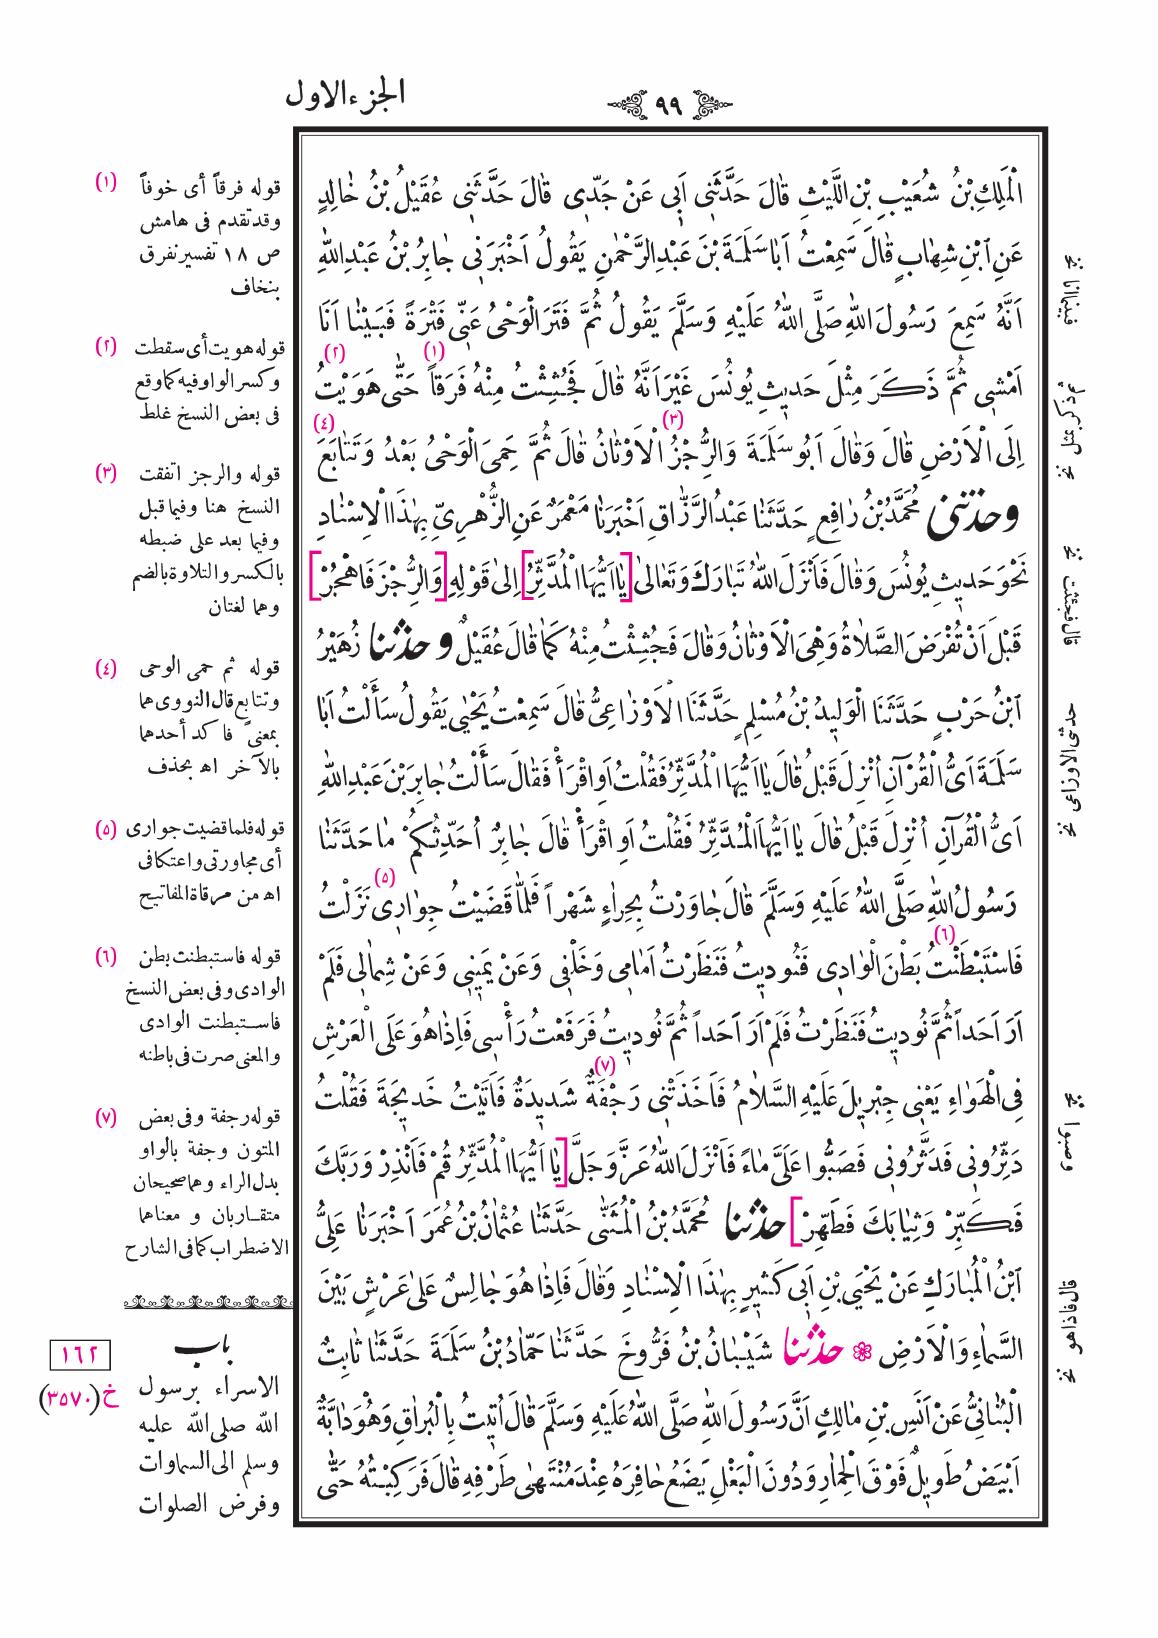 الجزء الاول
٩٩
الْمَلِكِ بْنُ شُعَيْبِ بْنِ اللَّيْثِ قَالَ حَدَّثَنِي أَبِي عَنْ جَدِّي قَالَ حَدَّثَنِي عُقَيْلُ بْنُ خَالِدٍ
عَنِ ابْنِ شِهَابٍ قَالَ سَمِعْتُ أَبَا سَلَمَةَ بْنَ عَبْدِ الرَّحْمٰنِ يَقُولُ أَخْبَرَنِي جَابِرُ بْنُ عَبْدِ اللّٰهِ
أَنَّهُ سَمِعَ رَسُولَ اللّٰهِ صَلَّى اللّٰهُ عَلَيْهِ وَسَلَّمَ يَقُولُ ثُمَّ فَتَرَ الْوَحْيُ عَنِّي فَتْرَةً فَبَيْنَا أَنَا
أَمْشِي ثُمَّ ذَكَرَ مِثْلَ حَدِيثِ يُونُسَ غَيْرَ أَنَّهُ قَالَ فَجُثِثْتُ مِنْهُ فَرَقاً (١) حَتَّى هَوَيْتُ (٢)
إِلَى الْأَرْضِ قَالَ وَقَالَ أَبُو سَلَمَةَ وَالرُّجْزُ (٣) الْأَوْثَانُ قَالَ ثُمَّ حَمِيَ الْوَحْيُ بَعْدُ وَتَتَابَعَ (٤)
وحدثنى مُحَمَّدُ بْنُ رَافِعٍ حَدَّثَنَا عَبْدُ الرَّزَّاقِ أَخْبَرَنَا مَعْمَرٌ عَنِ الزُّهْرِيِّ بِهٰذَا الْإِسْنَادِ
نَحْوَ حَدِيثِ يُونُسَ وَقَالَ فَأَنْزَلَ اللّٰهُ تَبَارَكَ وَتَعَالَى [يَا أَيُّهَا الْمُدَّثِّرُ] إِلَى قَوْلِهِ [وَالرِّجْزَ فَاهْجُرْ]
قَبْلَ أَنْ تُفْرَضَ الصَّلَاةُ وَهِيَ الْأَوْثَانُ وَقَالَ فَجُثِثْتُ مِنْهُ كَمَا قَالَ عُقَيْلٌ وحدثنا زُهَيْرُ
ابْنُ حَرْبٍ حَدَّثَنَا الْوَلِيدُ بْنُ مُسْلِمٍ حَدَّثَنَا الْأَوْزَاعِيُّ قَالَ سَمِعْتُ يَحْيَى يَقُولُ سَأَلْتُ أَبَا
سَلَمَةَ أَيُّ الْقُرْآنِ أُنْزِلَ قَبْلُ قَالَ يَا أَيُّهَا الْمُدَّثِّرُ فَقُلْتُ أَوِ اقْرَأْ فَقَالَ سَأَلْتُ جَابِرَ بْنَ عَبْدِ اللّٰهِ
أَيُّ الْقُرْآنِ أُنْزِلَ قَبْلُ قَالَ يَا أَيُّهَا الْمُدَّثِّرُ فَقُلْتُ أَوِ اقْرَأْ قَالَ جَابِرٌ أُحَدِّثُكُمْ مَا حَدَّثَنَا
رَسُولُ اللّٰهِ صَلَّى اللّٰهُ عَلَيْهِ وَسَلَّمَ قَالَ جَاوَرْتُ بِحِرَاءٍ شَهْراً فَلَمَّا قَضَيْتُ جِوَارِي (٥) نَزَلْتُ
فَاسْتَبْطَنْتُ (٦) بَطْنَ الْوَادِي فَنُودِيتُ فَنَظَرْتُ أَمَامِي وَخَلْفِي وَعَنْ يَمِينِي وَعَنْ شِمَالِي فَلَمْ
أَرَ أَحَداً ثُمَّ نُودِيتُ فَنَظَرْتُ فَلَمْ أَرَ أَحَداً ثُمَّ نُودِيتُ فَرَفَعْتُ رَأْسِي فَإِذَا هُوَ عَلَى الْعَرْشِ
فِي الْهَوَاءِ يَعْنِي جِبْرِيلَ عَلَيْهِ السَّلَامُ فَأَخَذَتْنِي رَجْفَةٌ (٧) شَدِيدَةٌ فَأَتَيْتُ خَدِيجَةَ فَقُلْتُ
دَثِّرُونِي فَدَثَّرُونِي فَصَبُّوا عَلَيَّ مَاءً فَأَنْزَلَ اللّٰهُ عَزَّ وَجَلَّ [يَا أَيُّهَا الْمُدَّثِّرُ قُمْ فَأَنْذِرْ وَرَبَّكَ
فَكَبِّرْ وَثِيَابَكَ فَطَهِّرْ] حدثنا مُحَمَّدُ بْنُ الْمُثَنَّى حَدَّثَنَا عُثْمَانُ بْنُ عُمَرَ أَخْبَرَنَا عَلِيُّ
ابْنُ الْمُبَارَكِ عَنْ يَحْيَى بْنِ أَبِي كَثِيرٍ بِهٰذَا الْإِسْنَادِ وَقَالَ فَإِذَا هُوَ جَالِسٌ عَلَى عَرْشٍ بَيْنَ
السَّمَاءِ وَالْأَرْضِ ❁ حدثنا شَيْبَانُ بْنُ فَرُّوخَ حَدَّثَنَا حَمَّادُ بْنُ سَلَمَةَ حَدَّثَنَا ثَابِتٌ
الْبُنَانِيُّ عَنْ أَنَسِ بْنِ مَالِكٍ أَنَّ رَسُولَ اللّٰهِ صَلَّى اللّٰهُ عَلَيْهِ وَسَلَّمَ قَالَ أُتِيتُ بِالْبُرَاقِ وَهُوَ دَابَّةٌ
أَبْيَضُ طَوِيلٌ فَوْقَ الْحِمَارِ وَدُونَ الْبَغْلِ يَضَعُ حَافِرَهُ عِنْدَ مُنْتَهَى طَرْفِهِ قَالَ فَرَكِبْتُهُ حَتَّى
فبينا أنا نخ
ثم ذكر بمثل نخ
قال فجثثت نخ
حدثنى الاوزاعى نخ
وصبوا نخ
قال فاذا هو نخ
(١) قوله فرقاً أى خوفاً
وقد تقدم فى هامش
ص ١٨ تفسير نفرق
بنخاف
(٢) قوله هويت أى سقطت
وكسر الواو فيه كما وقع
فى بعض النسخ غلط
(٣) قوله والرجز اتفقت
النسخ هنا وفيما قبل
وفيما بعد على ضبطه
بالكسر والتلاوة بالضم
وهما لغتان
(٤) قوله ثم حمى الوحى
وتتابع قال النووى هما
بمعنىً فاكد أحدهما
بالآخر اه بحذف
(٥) قوله فلما قضيت جوارى
أى مجاورتى واعتكافى
اه من مرقاة المفاتيح
(٦) قوله فاستبطنت بطن
الوادى وفى بعض النسخ
فاستبطنت الوادى
والمعنى صرت فى باطنه
(٧) قوله رجفة وفى بعض
المتون وجفة بالواو
بدل الراء وهما صحيحان
متقاربان و معناهما
الاضطراب كما فى الشارح
باب
١٦٢
الاسراء برسول
خ (٣٥٧٠)
الله صلى الله عليه
وسلم الى السماوات
وفرض الصلوات